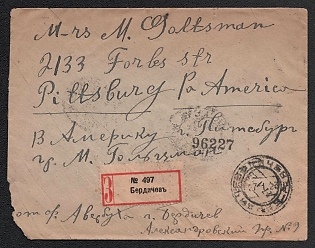 Mrs M. Goltsman
2133 Forbes str
Pittsburg Pa America
В Америку г. Питсбург
гр. М. Гольцман
96227
№ 497
Бердичев
от ф. Авербух г. Бердичев
Александровский № 9